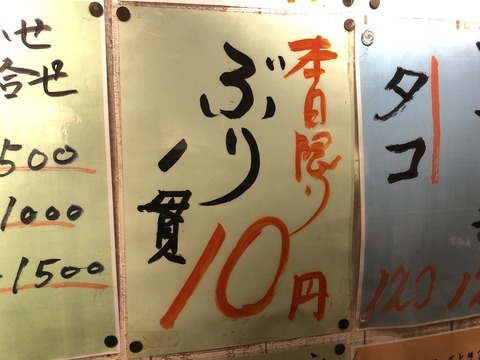 本日限り
ぶり
一貫
10円
タコ
120
合せ
500
1000
1500